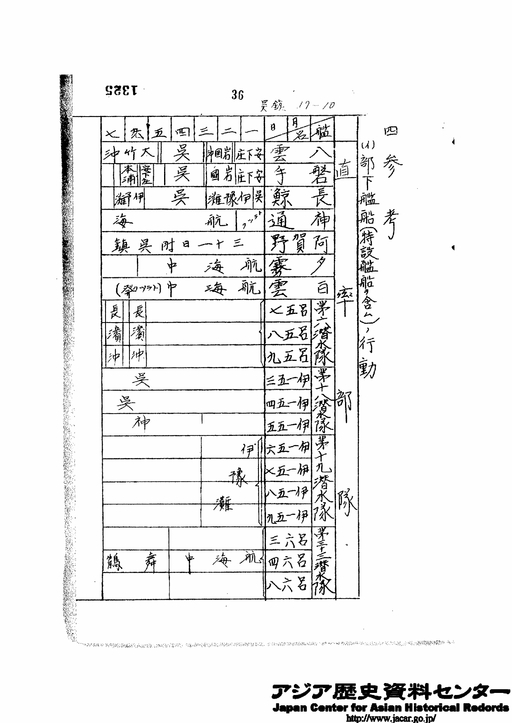 1325
36
呉鎮 17-10
四 参考
(イ)部下艦船(特設艦船ヲ含ム)ノ行動
直率部隊
艦名 月日 一 二 三 四 五 六 七
八雲 安下庄 岩国沖 呉 大竹沖
磐手 安下庄 岩国 呉
長鯨 呉 伊豫灘 呉 伊豫灘
神通 航海
阿賀野 三十一日附呉鎮
夕霧 航海中
白雲 航海中
第六潜水隊
呂五七 長濱沖 長濱沖
呂五八
呂五九
第十八潜水隊
伊一五三 呉
伊一五四 呉
伊一五五 神
第十九潜水隊
伊一五六 伊豫灘
伊一五七
伊一五八
伊一五九
第三十三潜水隊
呂六三
呂六四 航海中 舞鶴
呂六八
アジア歴史資料センター
Japan Center for Asian Historical Records
http://www.jacar.go.jp/